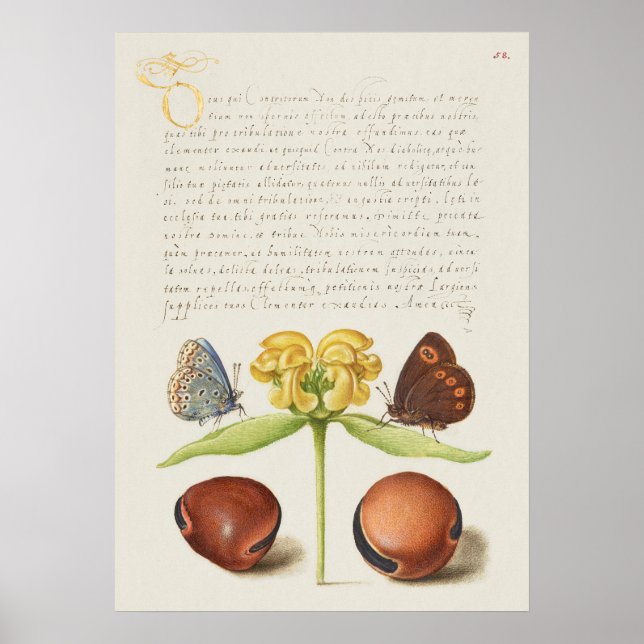 58.
Deus qui Contritorum Non despicis gemitum, et meren
tium non spernis affectum, adesto precibus nostris,
quas tibi pro tribulatione nostra effundimus, eas quæ
clementer exaudi, ut quicquid Contra Nos diabolicæ, atque hu-
manæ moliuntur adversitates, ad nihilum redigatur, et con
silio tuæ pietatis allidatur, quatenus nullis adversitatibus læ-
si, sed de omni tribulatione, et angustia erepti, lęti in
ecclesia tua tibi gratias referamus. Dimitte peccata
nostra Domine, et tribue Nobis misericordiam tuam,
quæsumus, et humilitatem nostram attendas, vincu
la solvas, delicta deleas, tribulationem Inspicias, adversi
tatem repellas, effectumque petitionis nostræ Largiens
supplices tuos Clementer exaudias. Amen